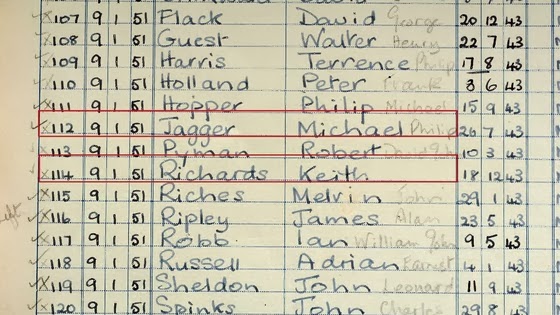 107 9 1 51 Flack David George 20 12 43
108 9 1 51 Guest Walter Henry 22 7 43
109 9 1 51 Harris Terrence Philip 17 8 43
110 9 1 51 Holland Peter Frank 3 6 43
x 111 9 1 51 Hopper Philip Michael 15 9 43
x 112 9 1 51 Jagger Michael Philip 26 7 43
x 113 9 1 51 Pyman Robert David John 10 3 43
x 114 9 1 51 Richards Keith 18 12 43
x 115 9 1 51 Riches Melvin John 29 1 43
x 116 9 1 51 Ripley James Alan 23 5 43
x 117 9 1 51 Robb Ian William John 9 5 43
x 118 9 1 51 Russell Adrian Earnest 4 1 43
x 119 9 1 51 Sheldon John Leonard 11 9 43
x 120 9 1 51 Spinks John Charles 29 8 43